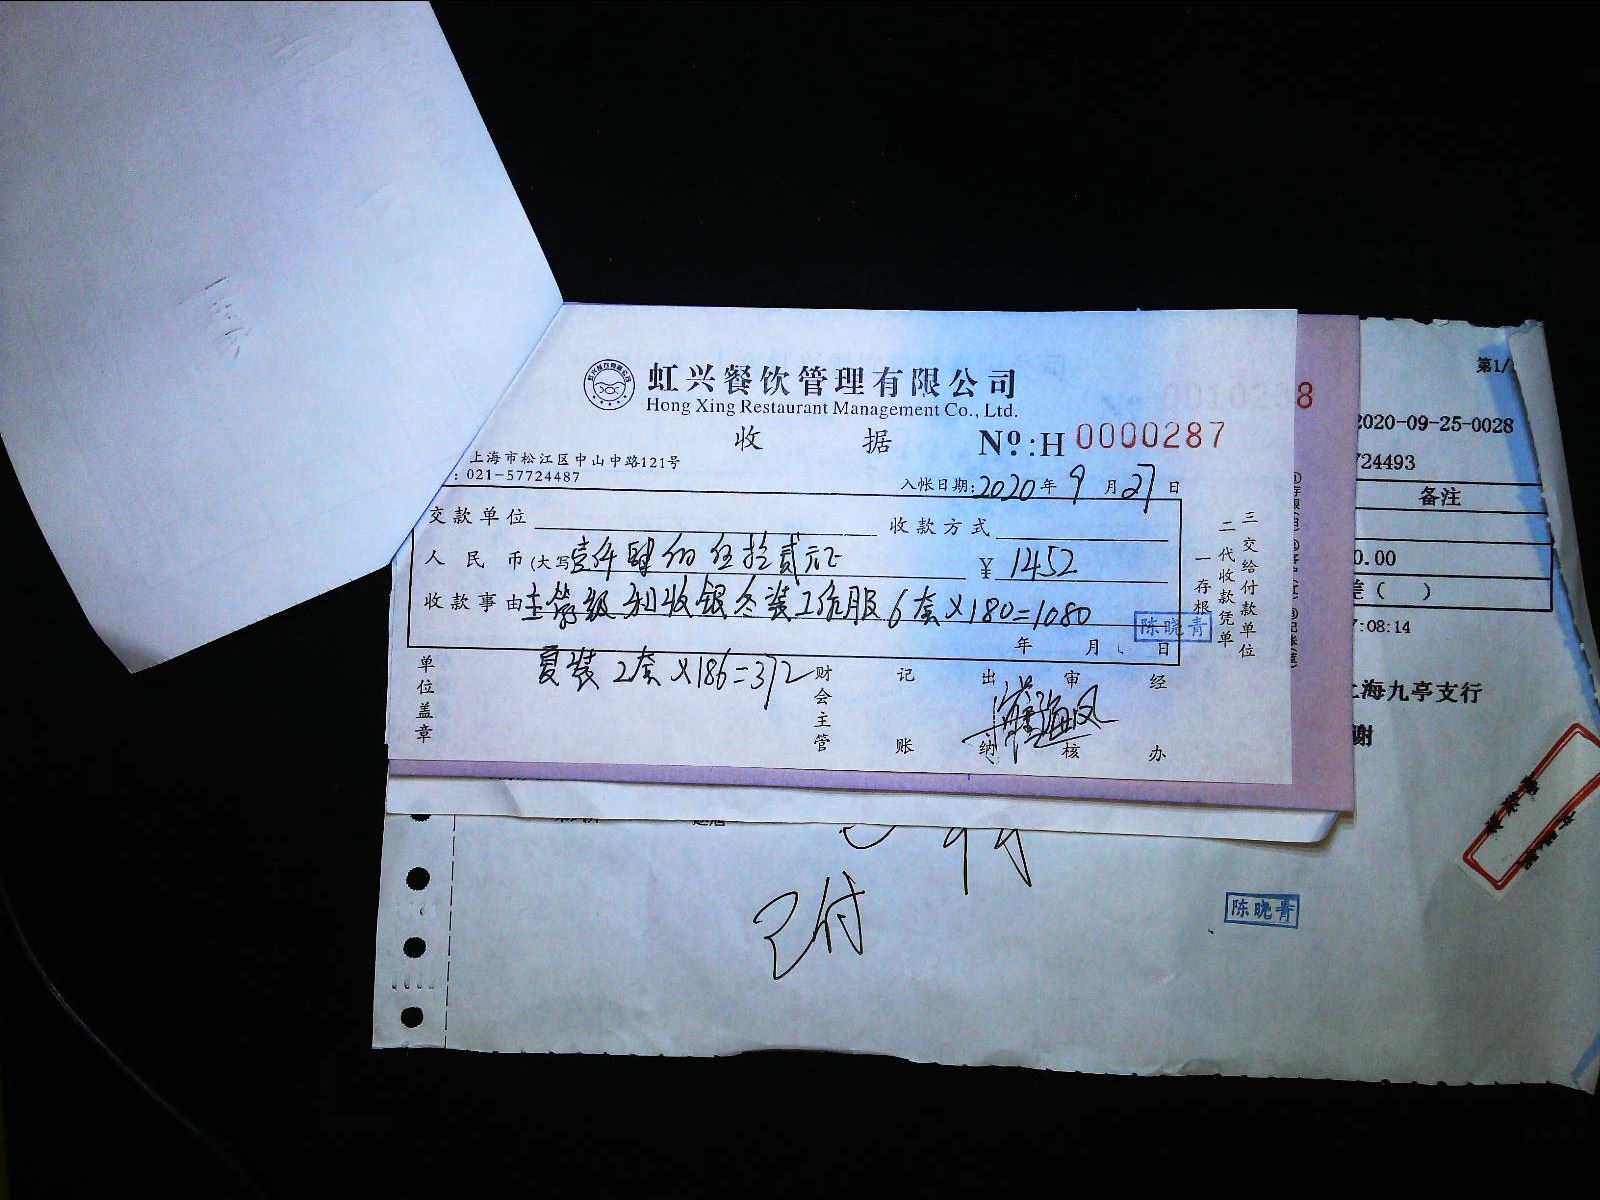 虹兴餐饮管理有限公司
Hong Xing Restaurant Management Co., Ltd.
收 据
№:H 0000287
上海市松江区中山中路121号
: 021-57724487
入帐日期:2020年9月27日
交款单位 收款方式
人民币(大写壹仟肆佰伍拾贰元正 ¥ 1452
收款事由 主管级和收银冬装工作服6套×180=1080
年 月 日
陈晓青
夏装 2套×186=372
单位盖章
财会主管
记账
出纳
审核
经办
一存根
二代收款凭单
三交给付款单位
0010238
第1/
2020-09-25-0028
724493
备注
0.00
差( )
7:08:14
上海九亭支行
谢
已付
陈晓青